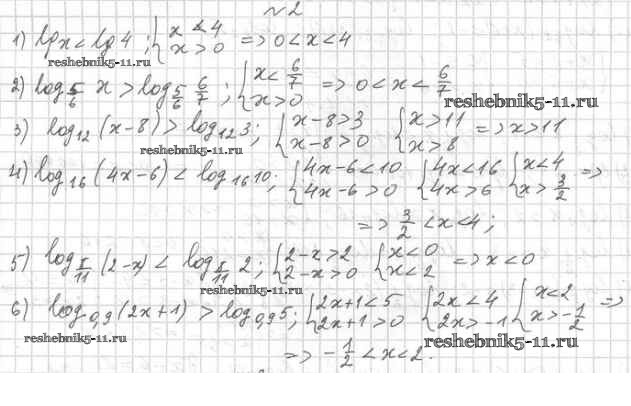 №2
1) lg x < lg 4 ; { x < 4 x > 0 => 0 < x < 4
reshebnik5-11.ru
2) log_{5/6} x > log_{5/6} 6/7 ; { x < 6/7 x > 0 => 0 < x < 6/7
reshebnik5-11.ru
3) log_{12} (x-8) > log_{12} 3; { x-8 > 3 x-8 > 0 { x > 11 x > 8 => x > 11
reshebnik5-11.ru
4) log_{16} (4x-6) < log_{16} 10; { 4x-6 < 10 4x-6 > 0 { 4x < 16 4x > 6 { x < 4 x > 3/2 =>
=> 3/2 < x < 4;
5) log_{π/11} (2-x) < log_{π/11} 2; { 2-x > 2 2-x > 0 { x < 0 x < 2 => x < 0
reshebnik5-11.ru
6) log_{0,9} (2x+1) > log_{0,9} 5; { 2x+1 < 5 2x+1 > 0 { 2x < 4 2x > -1 { x < 2 x > -1/2 =>
reshebnik5-11.ru
reshebnik5-11.ru
=> -1/2 < x < 2.